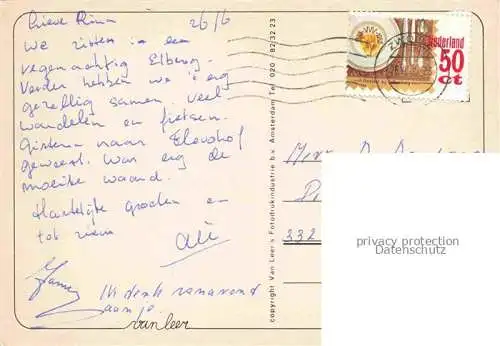 Lieve Rina 26/6
We zitten in een
regenachtig Elburg.
Verder hebben we 't erg
gezellig samen. Veel
wandelen en fietsen.
Gisteren naar
geweest. Was erg de
moeite waard.
Hartelijke groeten en
tot ziens
Ali
Ik denk vanavond
aan je.
van Leer
copyright Van Leer's Fotodrukindustrie b.v. Amsterdam Tel. 020 - 82 32 23
Nederland
50
ct
332
privacy protection
Datenschutz